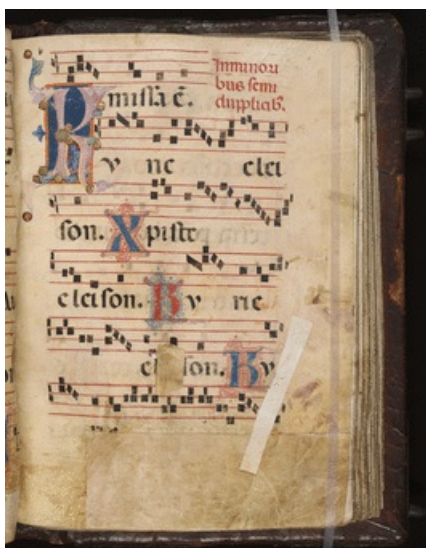 In minori
bus semi
duplicib.
missa e.
Ky rie elei
son. Xpiste
eleison. Ky rie
elei son. Ky
rie